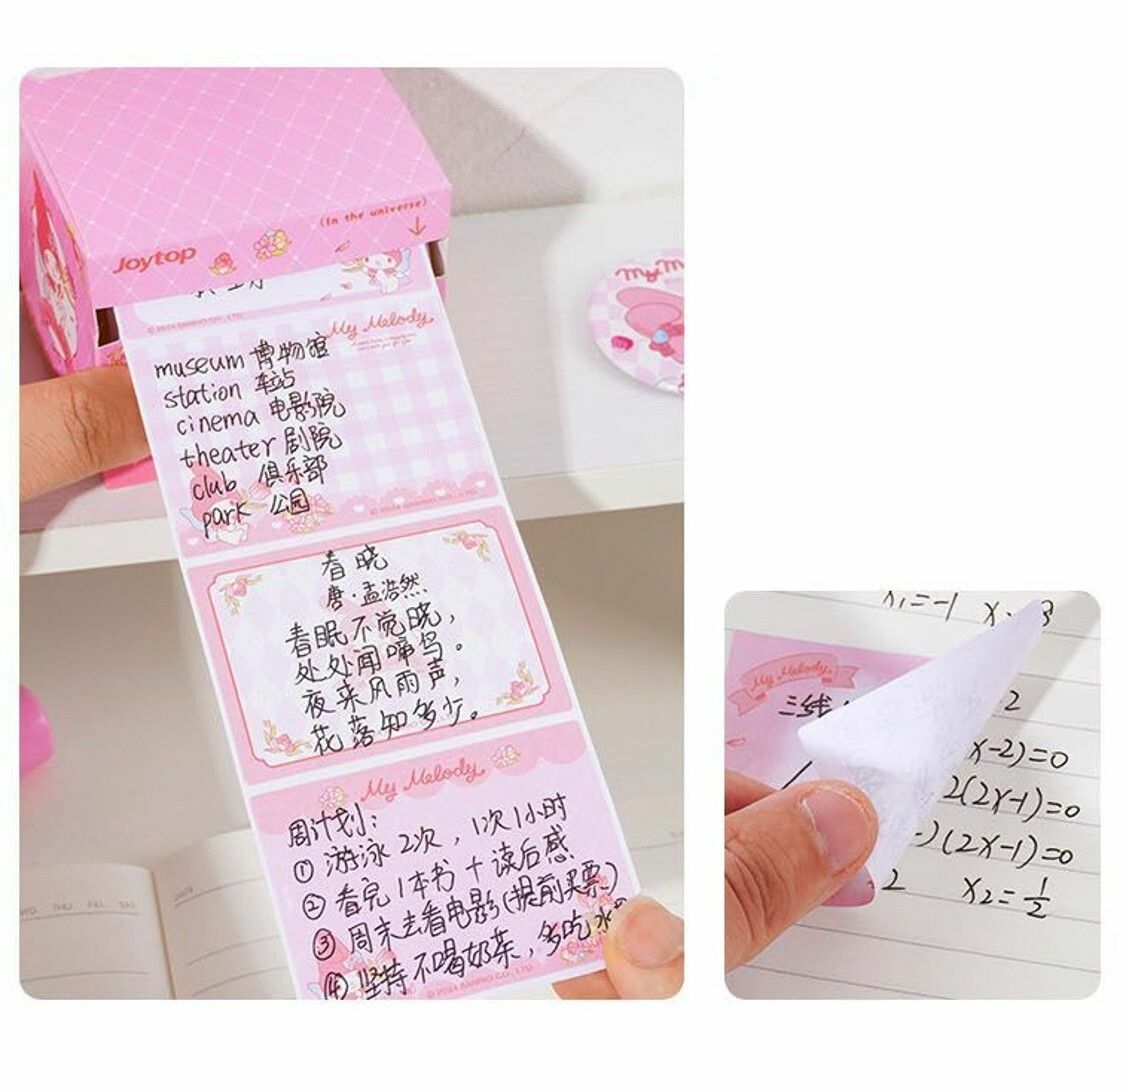 (In the universe)
Joytop
My Melody
museum 博物馆
station 车站
cinema 电影院
theater 剧院
club 俱乐部
park 公园
春晓
唐·孟浩然
春眠不觉晓,
处处闻啼鸟。
夜来风雨声,
花落知多少。
My Melody
周计划:
① 游泳2次,1次1小时
② 看完1本书+读后感
③ 周末去看电影(提前买票)
④ 坚持不喝奶茶,多吃水
© 2024 SANRIO CO., LTD.
DATE
THU FRI SAT
x₁=-1
My Melody
三线
2
x-2)=0
2(2x-1)=0
)(2x-1)=0
2
x₂=1/2